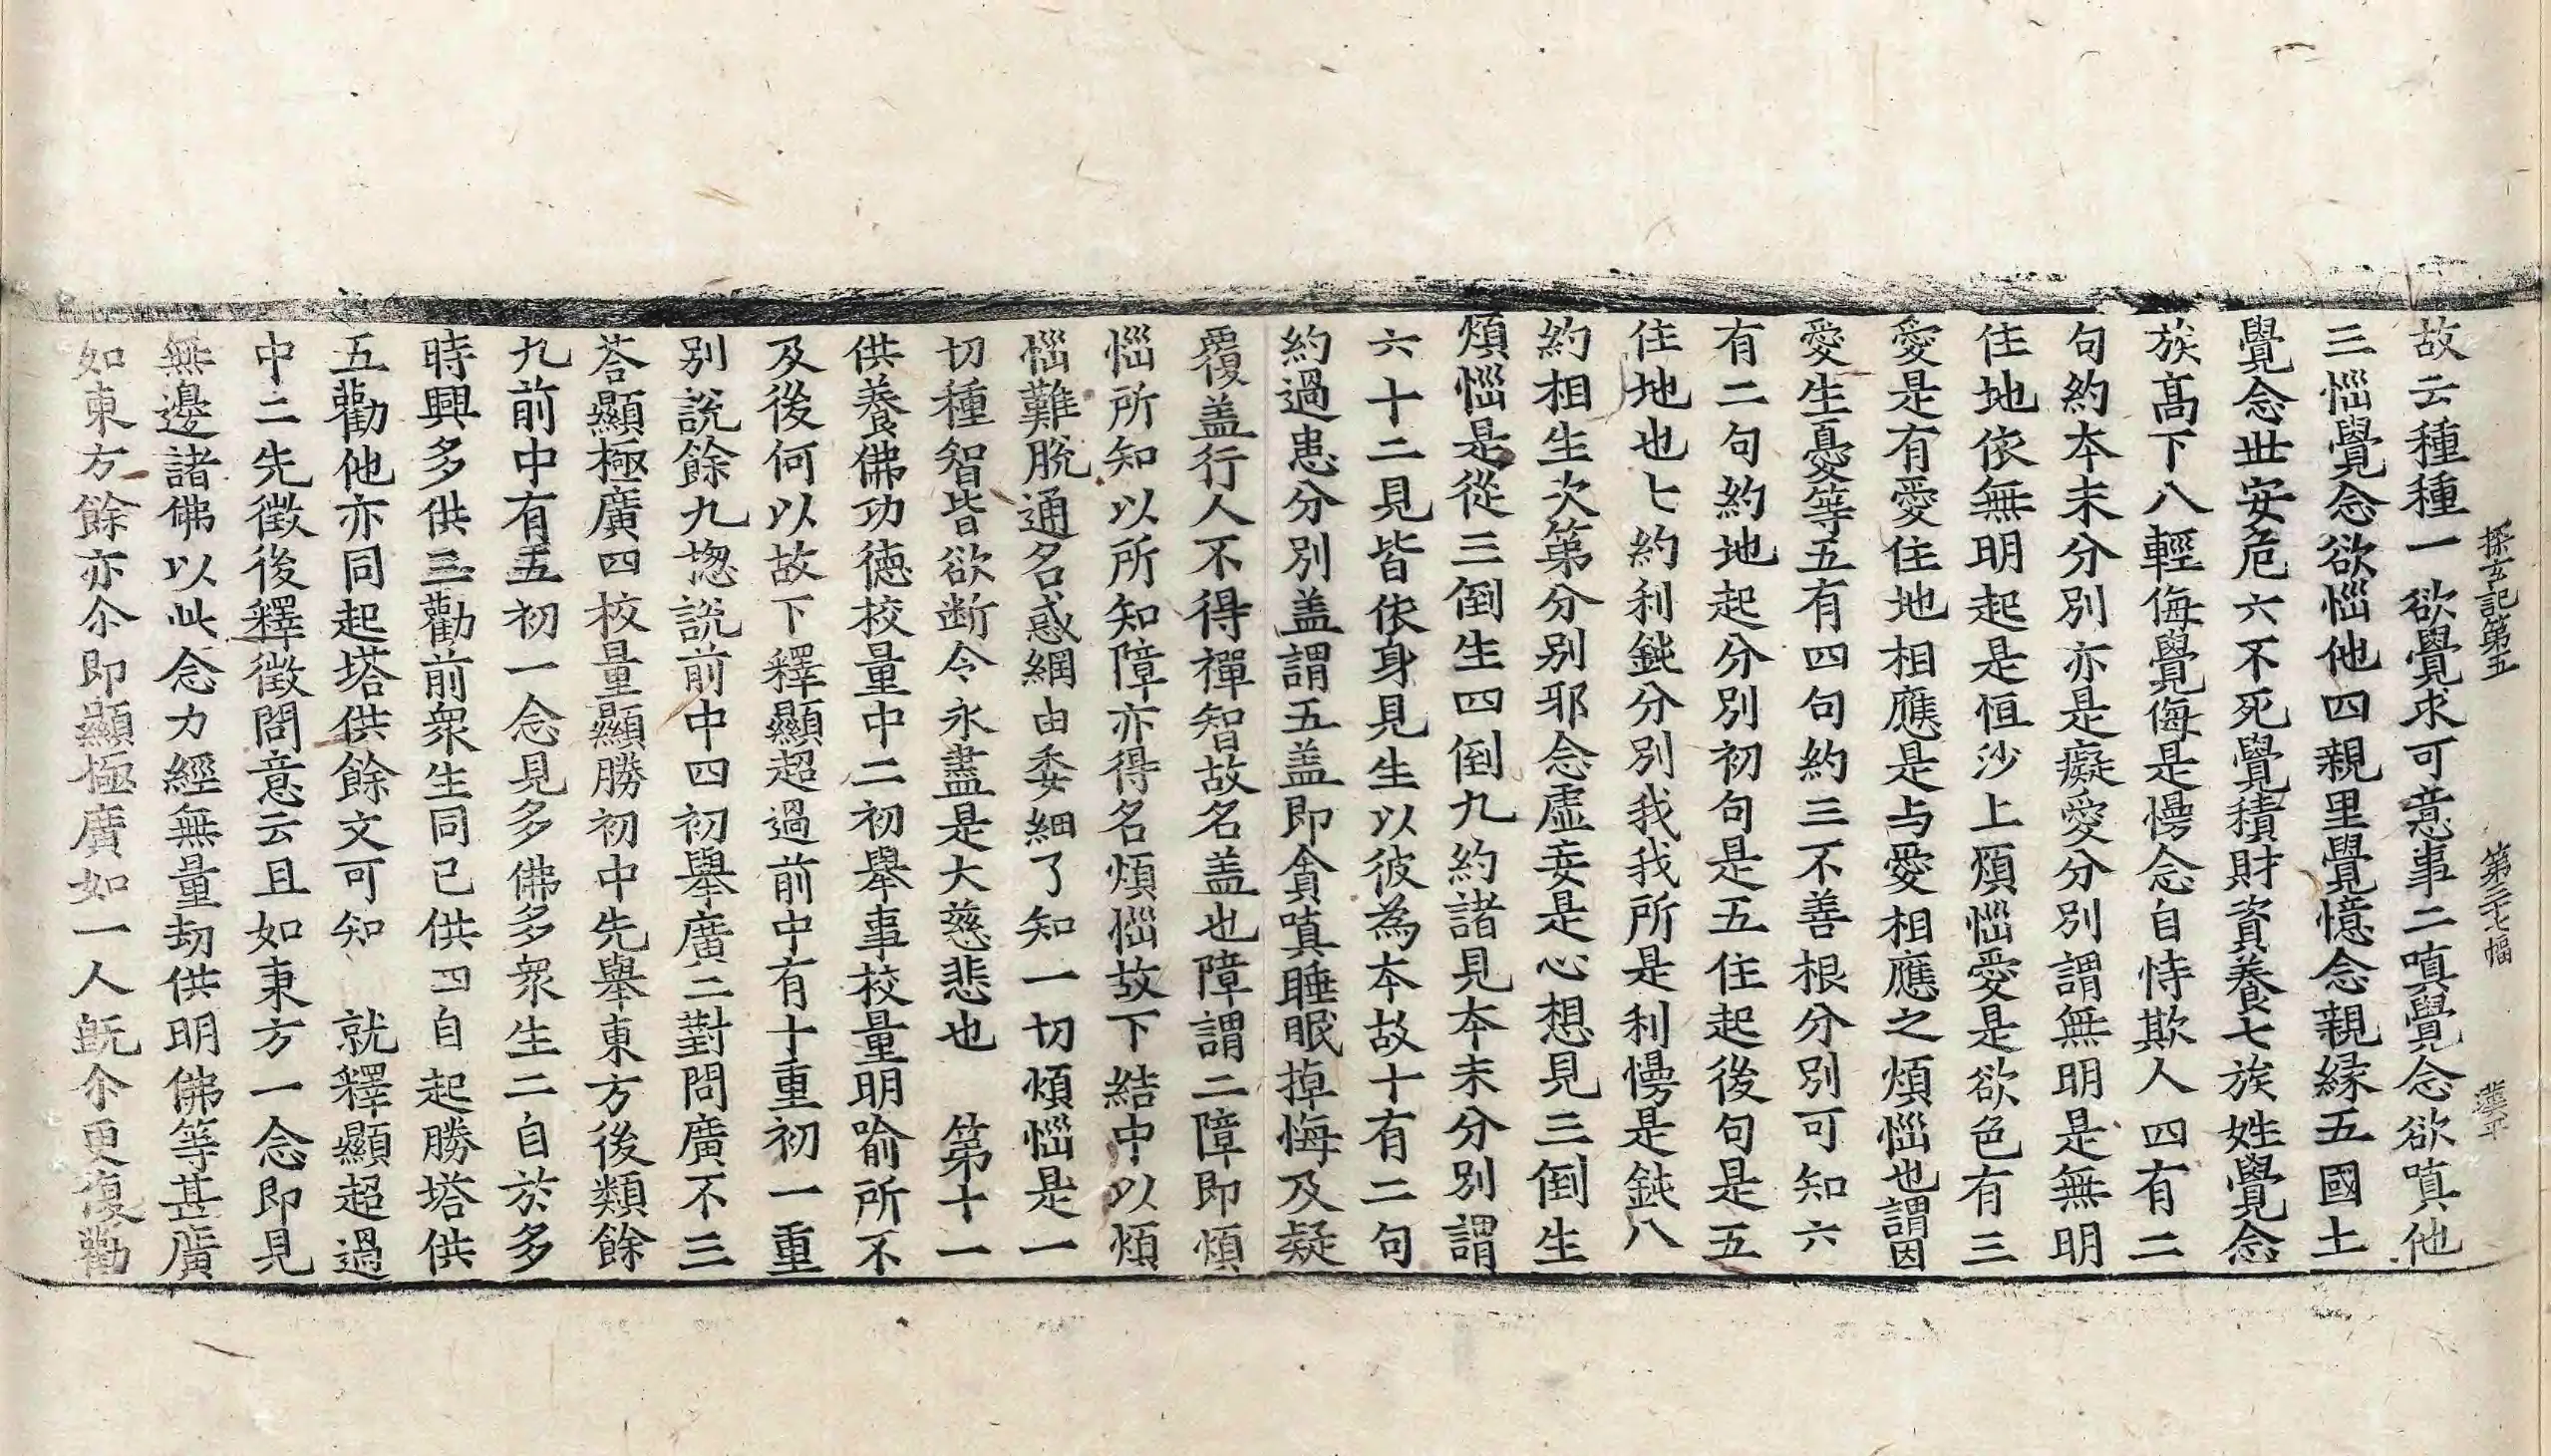 探玄記第五 第二十七幅 漢平
故云種種一欲覺求可意事二嗔覺念欲嗔他
三惱覺念欲惱他四親里覺憶念親緣五國土
覺念世安危六不死覺積財資養七族姓覺念
族髙下八輕侮覺侮是慢念自恃欺人四有二
句約本末分別亦是癡愛分別謂無明是無明
住地依無明起是恒沙上煩惱愛是欲色有三
愛是有愛住地相應是与愛相應之煩惱也謂因
愛生憂等五有四句約三不善根分別可知六
有二句約地起分別初句是五住起後句是五
住地也七約利鈍分別我我所是利慢是鈍八
約相生次第分別邪念虛妄是心想見三倒生
煩惱是從三倒生四倒九約諸見本末分別謂
六十二見皆依身見生以彼為本故十有二句
約過患分別盖謂五盖即貪嗔睡眠掉悔及疑
覆盖行人不得禪智故名盖也障謂二障即煩
惱所知以所知障亦得名煩惱故下結中以煩
惱難脫通名惑網由委細了知一切煩惱是一
切種智皆欲断令永盡是大慈悲也 第十一
供養佛功徳校量中二初舉事校量明喻所不
及後何以故下釋顯超過前中有十重初一重
別說餘九惣說前中四初舉廣二對問廣不三
荅顯極廣四校量顯勝初中先舉東方後類餘
九前中有五初一念見多佛多衆生二自於多
時興多供三勸前衆生同已供四自起勝塔供
五勸他亦同起塔供餘文可知 就釋顯超過
中二先徵後釋徵問意云且如東方一念即見
無邊諸佛以此念力經無量劫供明佛等甚廣
如東方餘亦尒即顯極廣如一人旣尒更復勸